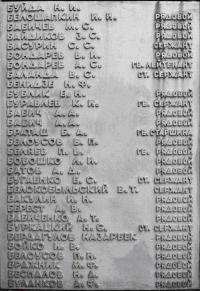 БУЙДА Н. И.
БЕЛОШАПКИН И. И. РЯДОВОЙ
БАБИЧЕВ М. С. РЯДОВОЙ
БАЙШИКОВ З. С. РЯДОВОЙ
БАСУРИН С. С. СЕРЖАНТ
БОНДАРЕВ В. И. РЯДОВОЙ
БОНДАРЕВ М. С. ГВ. ЛЕЙТЕНАНТ
БАЛАНДА В. С. СТ. СЕРЖАНТ
БЕНИДЗЕ Н. Ф.
БУБЛИК Е. Н. РЯДОВОЙ
БУРАВЛЕВ К. И. ГВ. СЕРЖАНТ
БАБИЧ А. РЯДОВОЙ
БАБИЧ А. РЯДОВОЙ
БРАТАШ Б. А. ГВ. СТАРШИНА
БЕЛОУСОВ В. П. РЯДОВОЙ
БЕЛЯЕВ П. Е. ГВ. РЯДОВОЙ
БОБОШКО Л. Н. РЯДОВОЙ
БАТОВ А. Д. РЯДОВОЙ
БУГАЕНКО В. С. СТ. СЕРЖАНТ
БЕЛОКОБЫЛЬСКИЙ В. Т. СЕРЖАНТ
БАКУЛИН И. Н. РЯДОВОЙ
БЕРЕСТ А. В. РЯДОВОЙ
БАБИЧЕНКО А. Т. РЯДОВОЙ
БУРКАЦКИЙ Н. С. СТ. СЕРЖАНТ
БЕРДАГУЛОВ НАЗАРБЕК РЯДОВОЙ
БОЙКО А. В. РЯДОВОЙ
БЕЛОУСОВ П. Н. РЯДОВОЙ
БРАЖНИК М. Ф. РЯДОВОЙ
БЕСПАЛОВ Н. А. РЯДОВОЙ
БУЛАНКОВ А. Ф. РЯДОВОЙ